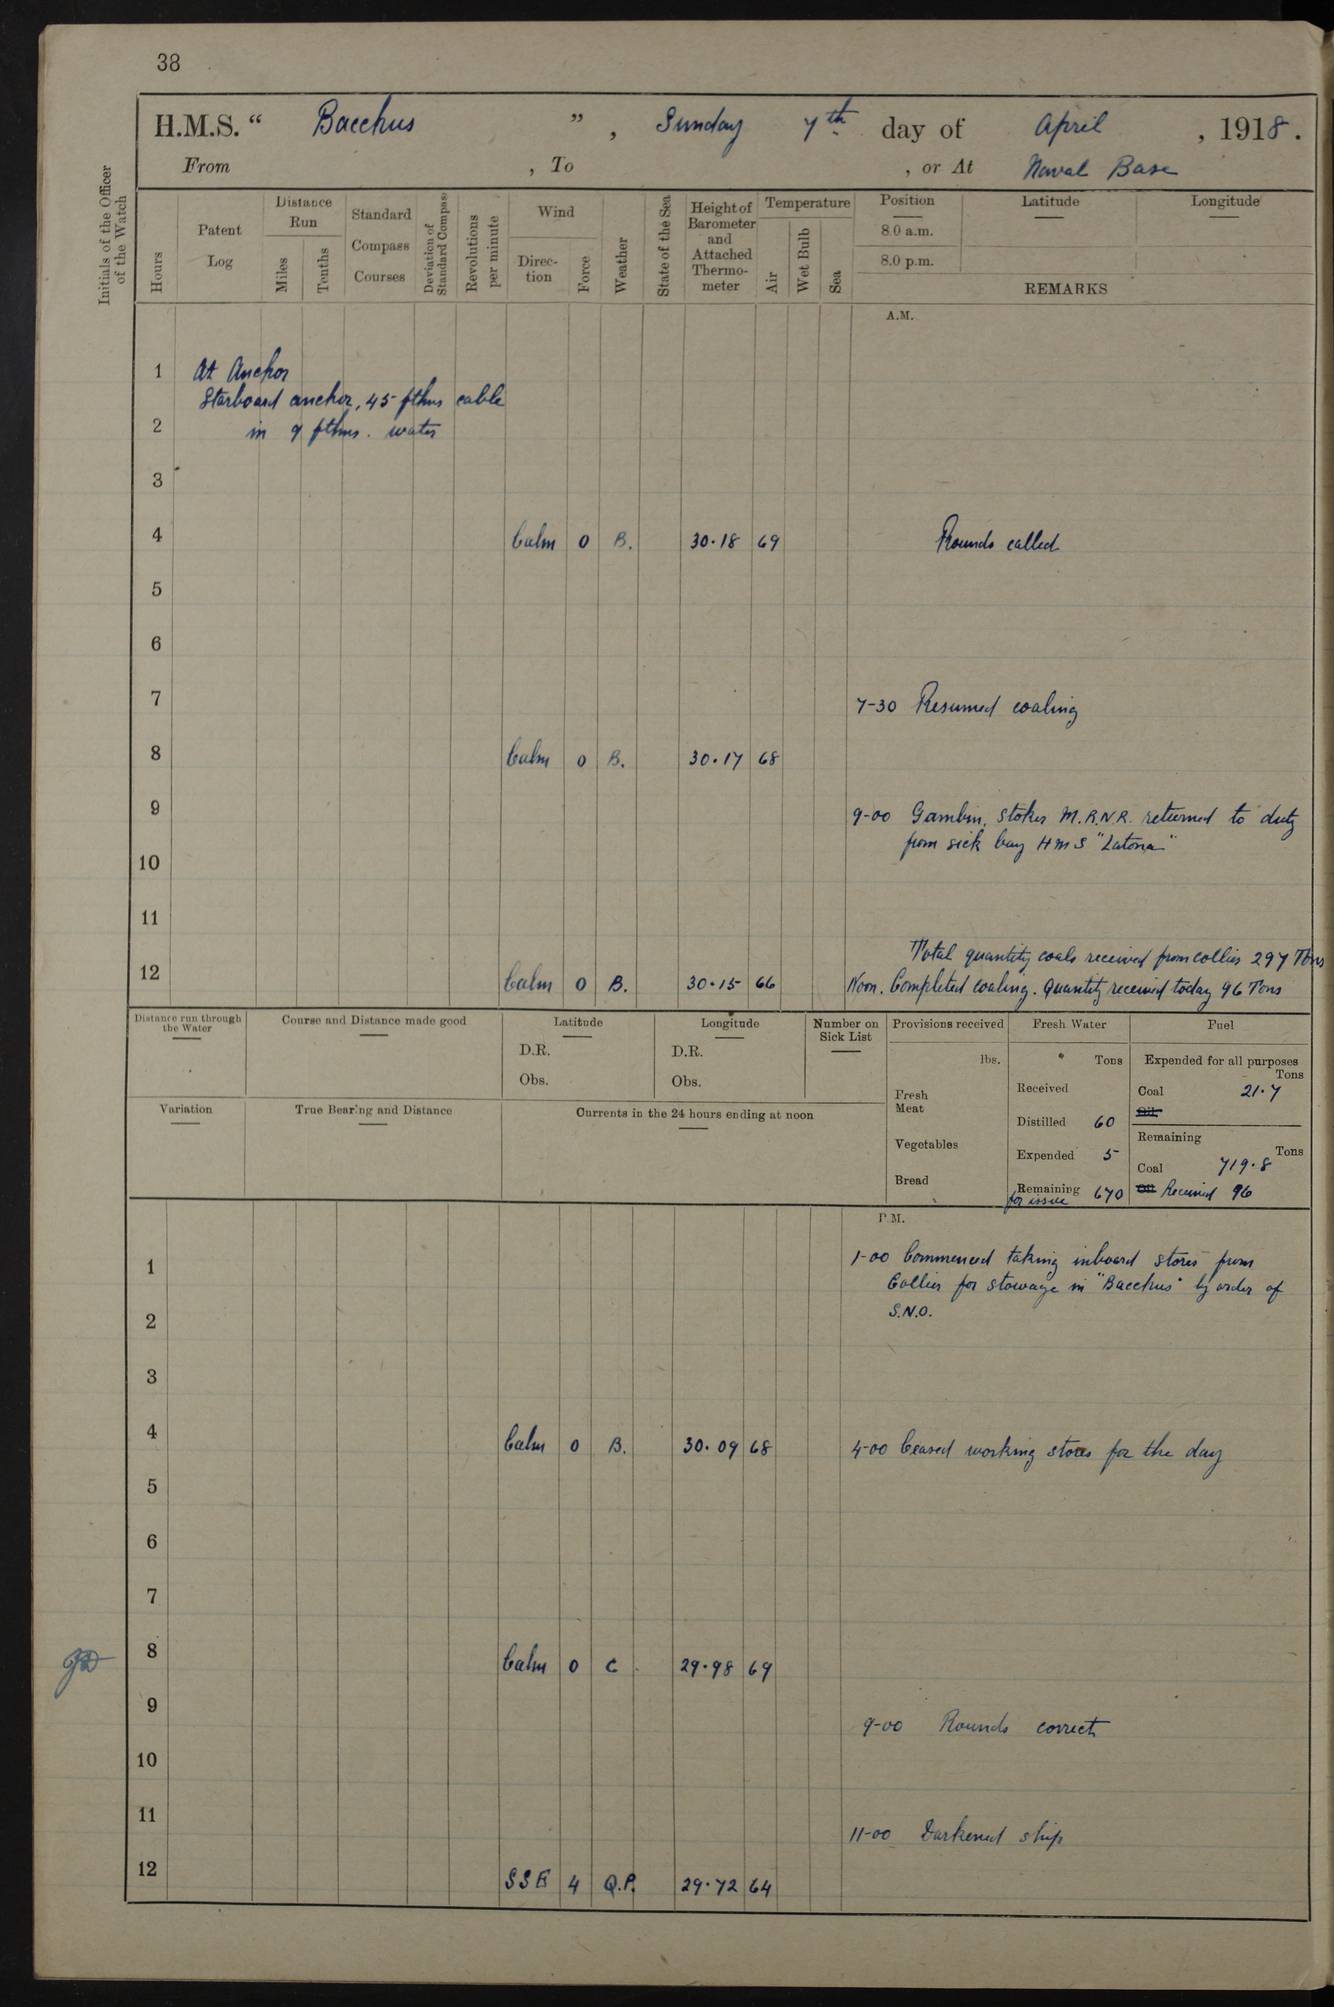 38
H.M.S. “ Bacchus ” , Sunday 7th day of April , 1918.
From , To , or At Naval Base
Initials of the Officer of the Watch
Hours
Patent Log
Distance Run
Miles
Tenths
Standard Compass Courses
Deviation of Standard Compass
Revolutions per minute
Wind
Direc-tion
Force
Weather
State of the Sea
Height of Barometer and Attached Thermo-meter
Temperature
Air
Wet Bulb
Sea
Position Latitude Longitude
8.0 a.m.
8.0 p.m.
REMARKS
A.M.
1 At Anchor
Starboard anchor, 45 fthms cable
2 in 9 fthms. water
3
4 Calm 0 B. 30.18 69 Rounds called
5
6
7 7-30 Resumed coaling
8 Calm 0 B. 30.17 68
9 9-00 Gambin, Stoker M.R.N.R. returned to duty
from sick bay HMS "Latona"
10
11
Total quantity coals received from collier 297 Tons
12 Calm 0 B. 30.15 66 Noon. Completed coaling. Quantity received today 96 Tons
Distance run through the Water
Course and Distance made good
Latitude
D.R.
Obs.
Longitude
D.R.
Obs.
Number on Sick List
Provisions received
lbs.
Fresh Meat
Vegetables
Bread
Fresh Water
Tons
Received
Distilled 60
Expended 5
Remaining for issue 670
Fuel
Expended for all purposes
Tons
Coal 21.7
Oil
Remaining
Tons
Coal 719.8
Oil Received 96
Variation
True Bearing and Distance
Currents in the 24 hours ending at noon
P.M.
1 1-00 Commenced taking inboard stores from
Collier for stowage in "Bacchus" by order of
2 S.N.O.
3
4 Calm 0 B. 30.09 68 4-00 Ceased working stores for the day
5
6
7
8 Calm 0 C 29.98 69
9 9-00 Rounds correct
10
11 11-00 Darkened ship
12 SSE 4 Q.P. 29.72 64